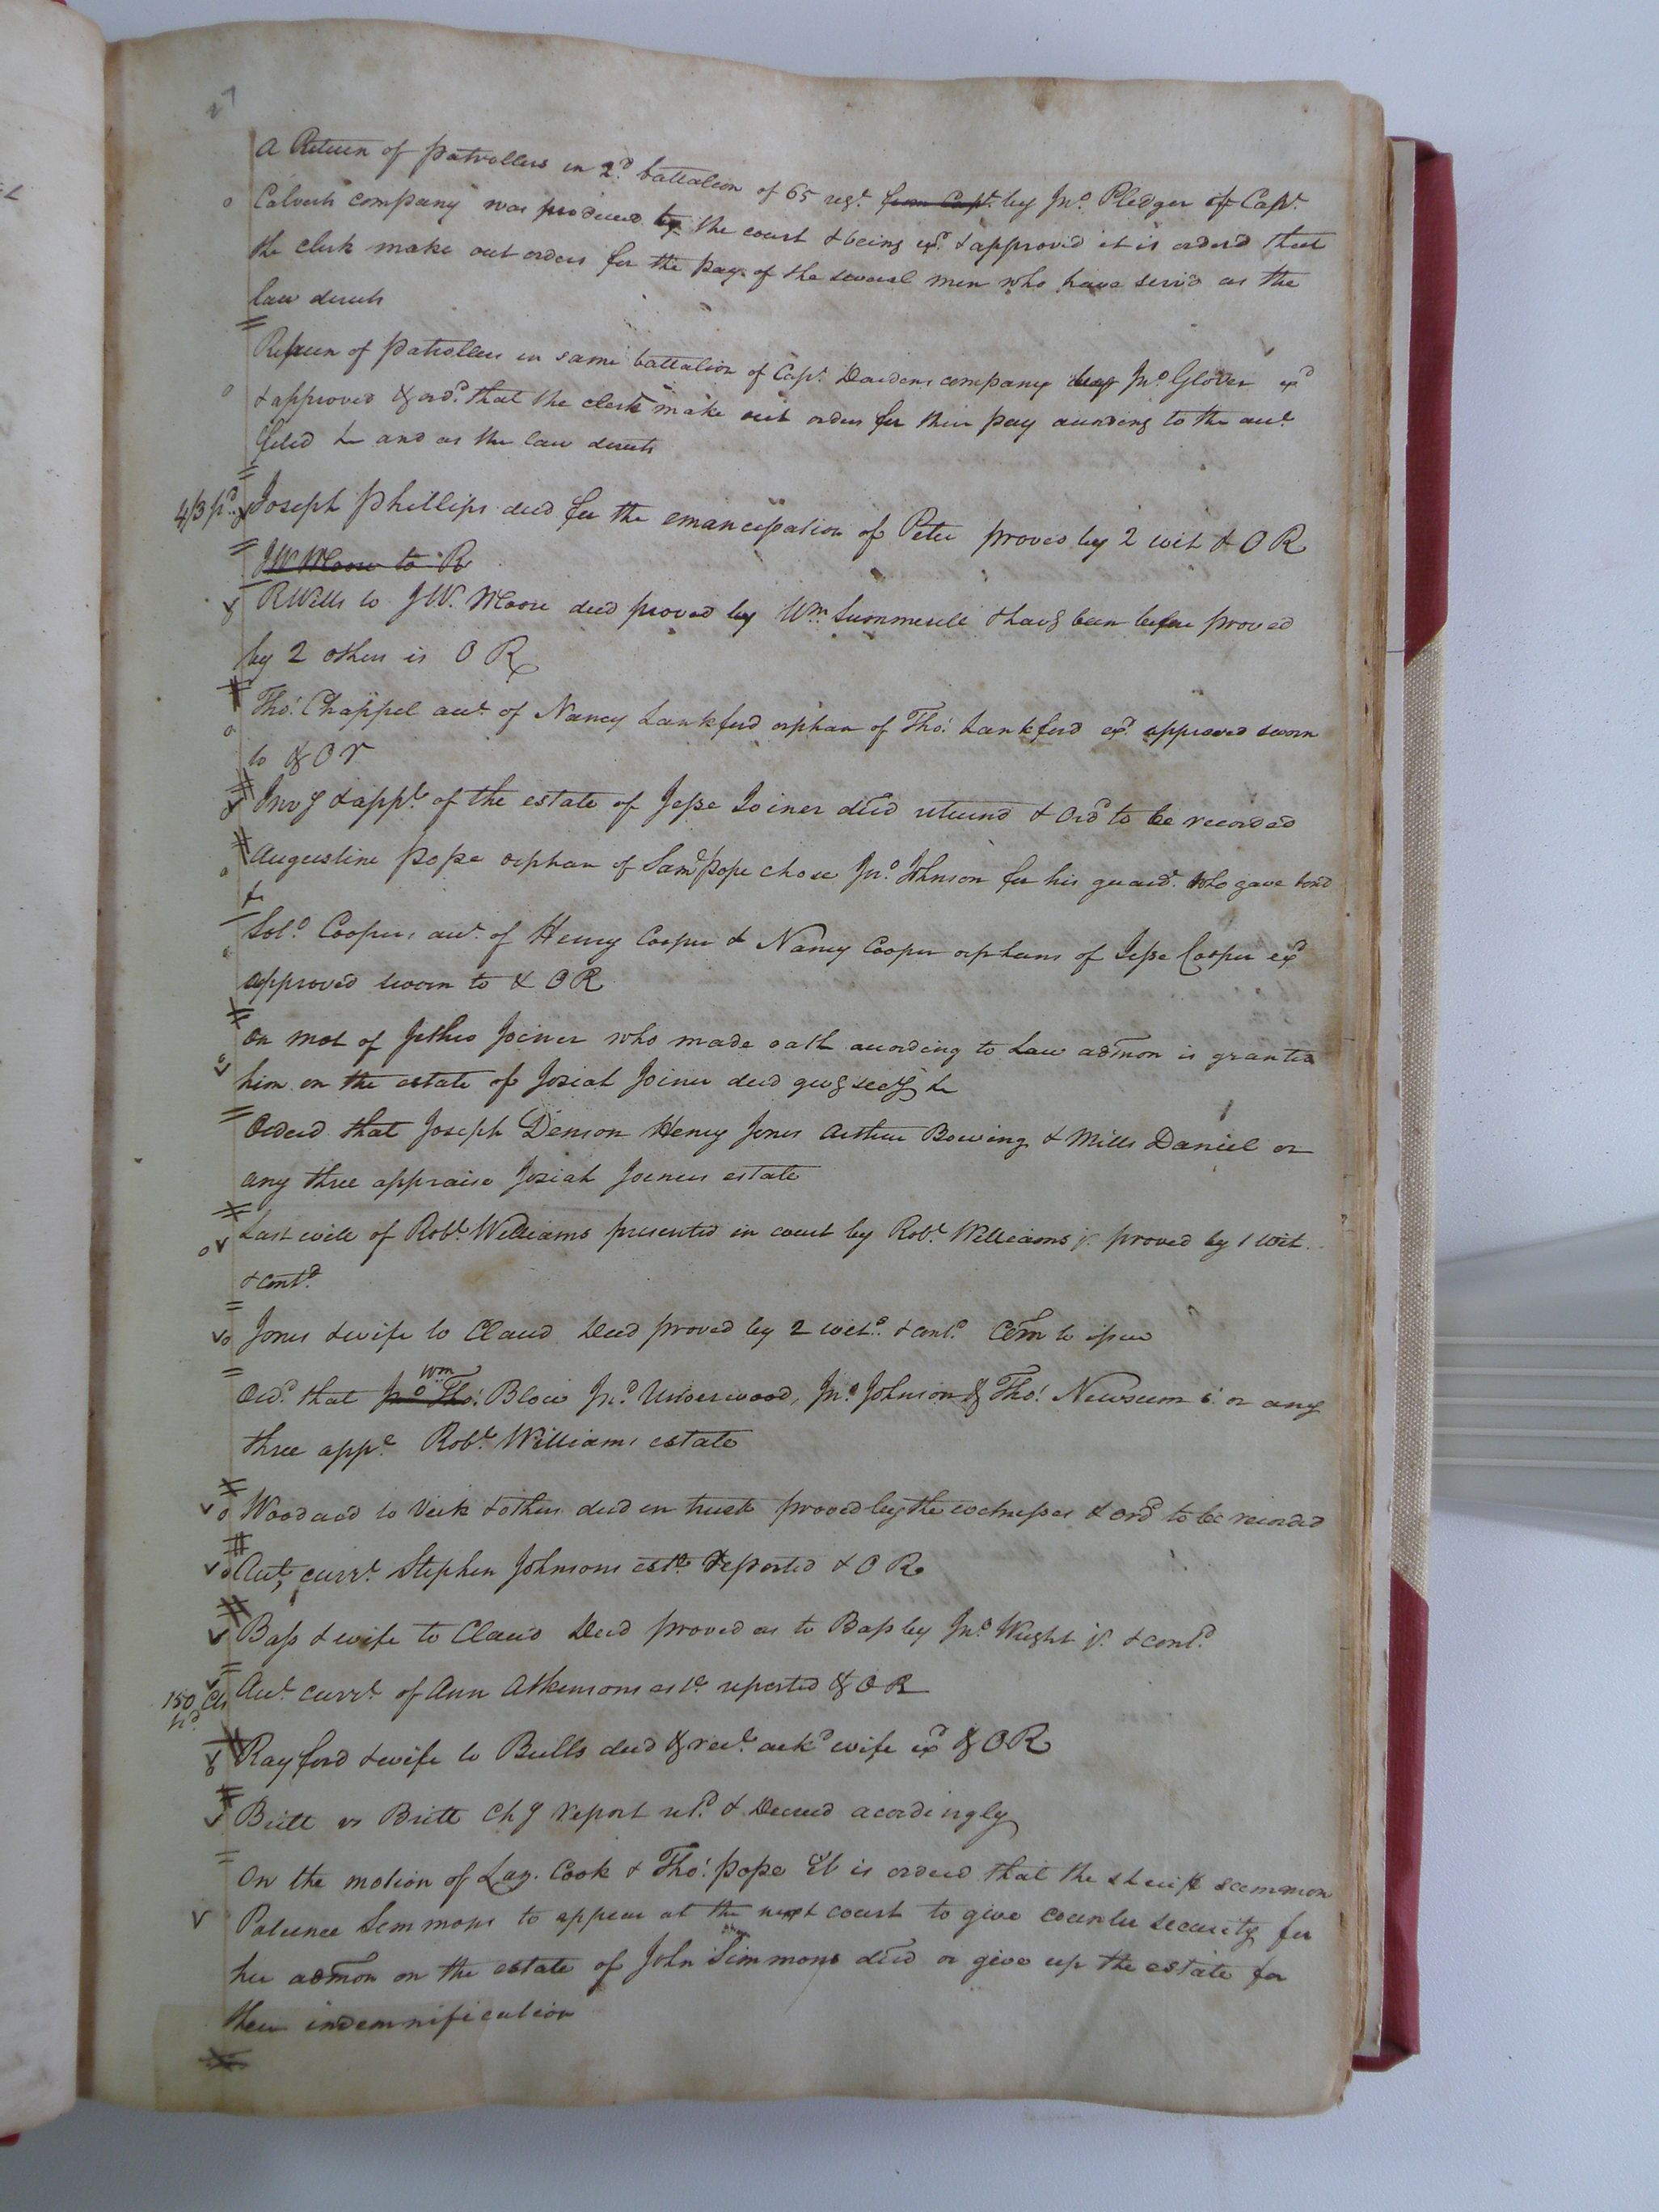 A Return of patrollers in 2d. battalion of 65 regt. from Capt. by Jno. Pledger of Capt.
Calverts company was produced to the court & being exd. & approved it is orderd that
the clerk make out orders for the pay of the several men who have servd as the
law directs
Return of patrollers in same battalion of Capt. Dardens company by Jno Glover exd
& approved & ord. that the clerk make out orders for their pay according to the acct.
filed &c and as the law directs
4/3 pd. Joseph Phillips deed for the emancipation of Peter proved by 2 wit & O R
JW Moore to R
R Wills to JW. Moore deed proved by Wm. Summerell & havg been before proved
by 2 others is O R
Thos. Chappel acct. of Nancy Lankford orphan of Thos. Lankford exd. approved sworn
to & O r
Invy & appt. of the estate of Jesse Joiner decd returnd & Ord to be recorded
Augustine Pope orphan of Saml Pope chose Jno. Johnson for his guard. who gave bond
&c
Solo. Coopers acct. of Henry Cooper & Nancy Cooper orphans of Jesse Cooper exd
approved sworn to & O R
On mot of Jethro Joiner who made oath according to Law admon is granted
him on the estate of Josiah Joiner decd givg secy &c
Orderd that Joseph Denson Henry Jones Arthur Bowing & Mills Daniel or
any three appraise Josiah Joiners estate
Last will of Robt. Williams presented in court by Robt. Williams jr. proved by 1 wit.
& contd.
Jones & wife to Claud Deed proved by 2 wits. & contd. Com to issue
Wm
Ord. that Jno Thos. Blow Jno. Underwood, Jno Johnson & Thos. Newsum or any
three appe. Robt. Williams estate
Woodard to Vick & others deed in trust proved by the witnesses & ord to be recorded
Act, currt. Stephen Johnsons este. reported & O R
Bass & wife to Claud Deed proved as to Bass by Jno. Wright jr. & contd.
150 Cts pd. Act. currt. of Ann Atkinsons este reported & O R
Rayford & wife to Bulls deed & rect. ackd wife exd & O R
Britt vs Britt Chy report retd. & Decreed acordingly
On the motion of Laz. Cook & Thos. Pope It is orderd that the sheriff summon
Patience Simmons to appear at the next court to give counter security for
her admon on the estate of John Simmons decd or give up the estate for
their indemnification